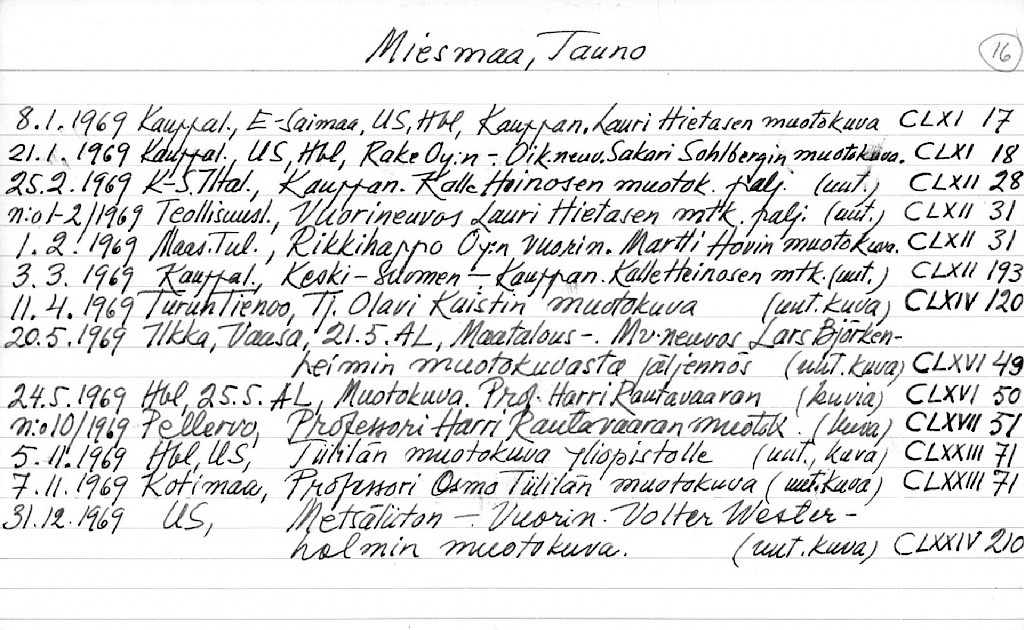 Miesmaa, Tauno
16
8.1.1969 Kauppal., E-Saimaa, US, Hbl, Kauppan. Lauri Hietasen muotokuva CLXI 17
21.1.1969 Kauppal., US, Hbl, Rake Oy:n - Oik.neuv. Sakari Sohlbergin muotokuva. CLXI 18
25.2.1969 K-S. Iltal., Kauppan. Kalle Heinosen muotok. palj. (uut.) CLXII 28
n:o 1-2/1969 Teollisuusl., Vuorineuvos Lauri Hietasen mtk. palj. (uut.) CLXII 31
1.2.1969 Maas.Tul., Rikkihappo Oy:n vuorin. Martti Hovin muotokuva. CLXII 31
3.3.1969 Kauppal., Keski-Suomen - Kauppan. Kalle Heinosen mtk. (uut.) CLXII 193
11.4.1969 Turun Tienoo, Tj. Olavi Kaistin muotokuva (uut.kuva) CLXIV 120
20.5.1969 Ilkka, Vaasa, 21.5. AL, Maatalous-. Mv.neuvos Lars Björken-
heimin muotokuvasta jäljennös (uut.kuva) CLXVI 49
24.5.1969 Hbl, 25.5. AL, Muotokuva. Prof. Harri Rautavaaran (kuvia) CLXVI 50
n:o 10/1969 Pellervo, Professori Harri Rautavaaran muotok. (kuva) CLXVII 51
5.11.1969 Hbl, US, Tiililän muotokuva yliopistolle (uut., kuva) CLXXIII 71
7.11.1969 Kotimaa, Professori Osmo Tiililän muotokuva (uut.kuva) CLXXIII 71
31.12.1969 US, Metsäliiton - Vuorin. Volter Wester-
holmin muotokuva. (uut.kuva) CLXXIV 210